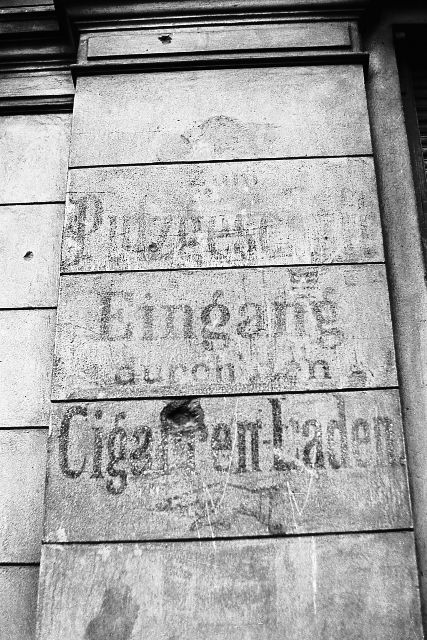 Zum
Putzgeschäft
Eingang
durch den
Cigarren-Laden.